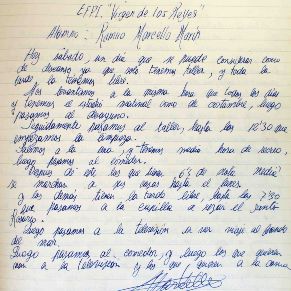 E.F.P.I. "Virgen de los Reyes"
Alumno: Ramiro Marcello Marín
Hoy sábado, un día que se puede considerar como
de descanso ya que solo tenemos taller, y toda la
tarde, la tenemos libre.
Nos levantamos a la misma hora que todos los días
y tenemos el estudio natural como de costumbre, luego
pasamos al desayuno.
Seguidamente pasamos al taller, hasta las 12'30 que
empezamos la limpieza.
Salimos a la una, y tenemos media hora de recreo
luego pasamos al comedor.
Después de esto los que tienen 6's de nota media
se marchan a sus casas hasta el lunes
y los demás tienen la tarde libre, hasta las 7'30
que pasamos a la capilla a rezar el Santo
Rosario.
Luego pasamos a la televisión a ver
Luego pasamos al comedor, y luego los que quieran
van a la televisión y los que quieran a la cama